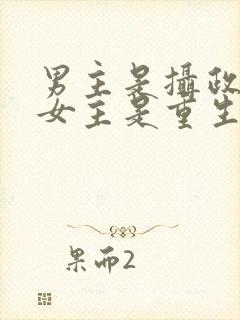 男主是攝政
女主是重生
果而2